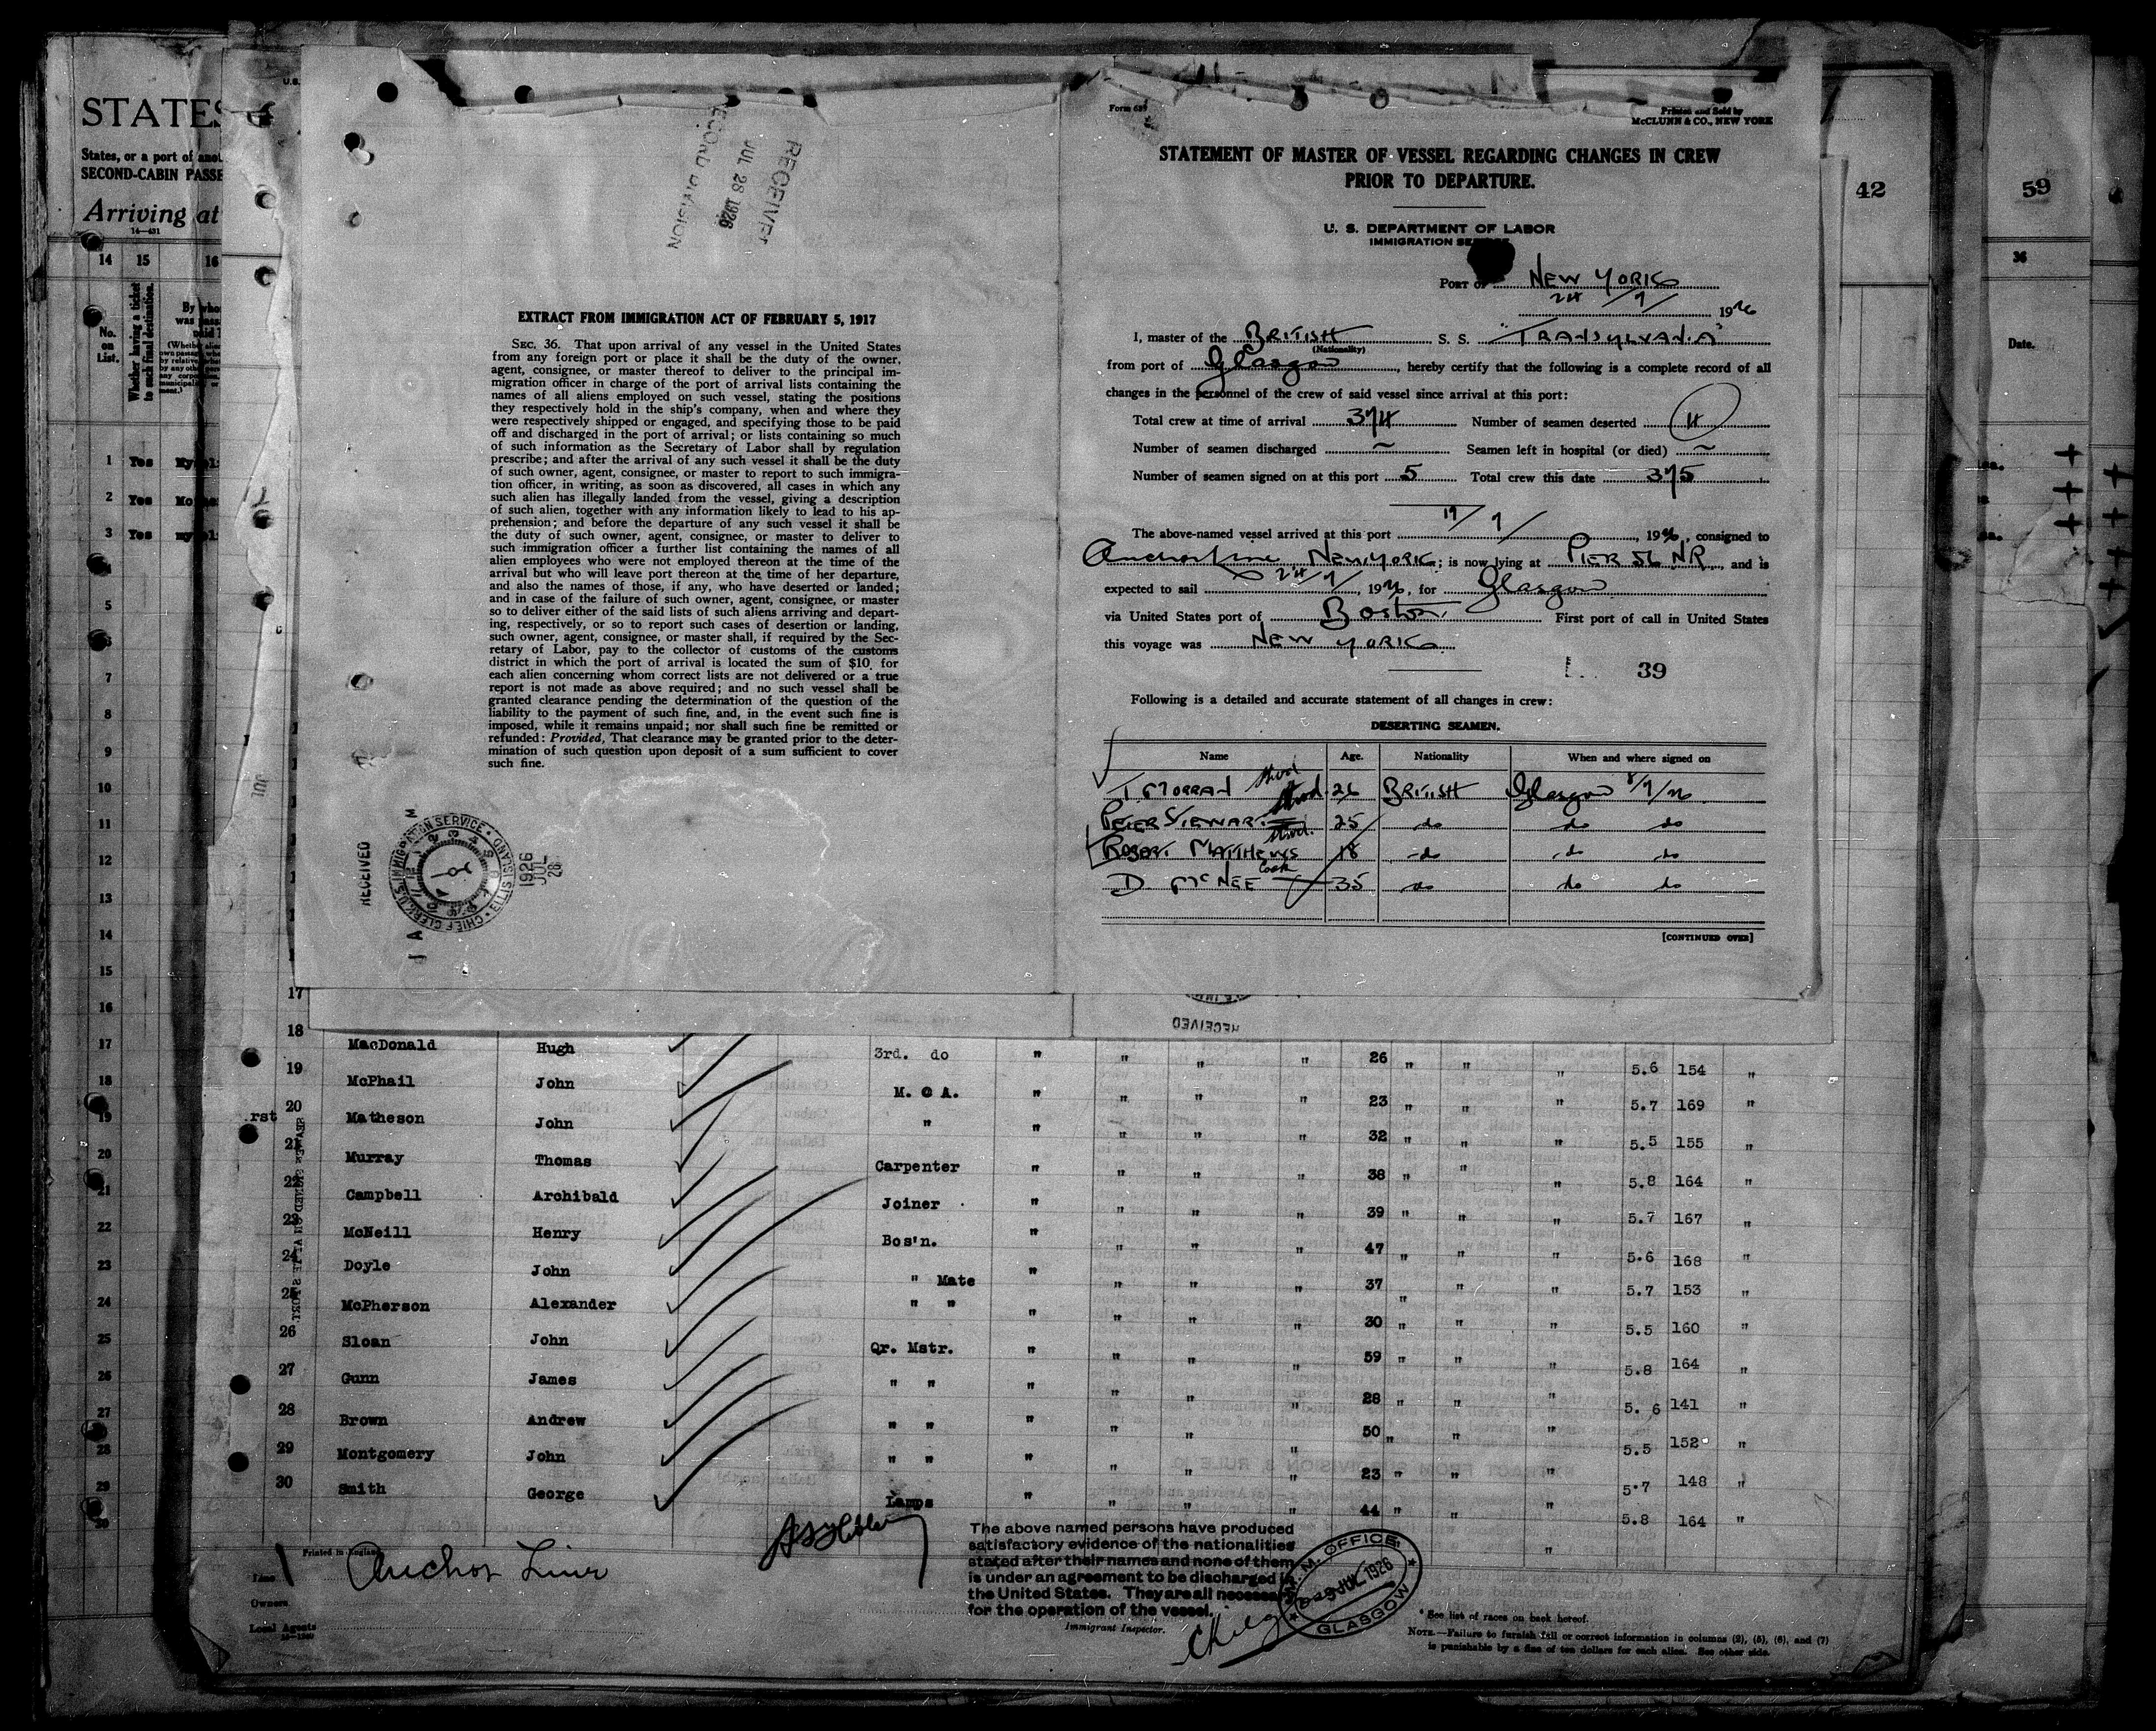 STATES
States, or a port of
SECOND-CABIN
Arriving at
14 15 16
No. on List.
Whether having a ticket to such final destination.
1 Yes
2 Yes
3 Yes
RECEIVED
JUL 28 1926
RECORD DIVISION
EXTRACT FROM IMMIGRATION ACT OF FEBRUARY 5, 1917
SEC. 36. That upon arrival of any vessel in the United States
from any foreign port or place it shall be the duty of the owner,
agent, consignee, or master thereof to deliver to the principal im-
migration officer in charge of the port of arrival lists containing the
names of all aliens employed on such vessel, stating the positions
they respectively hold in the ship's company, when and where they
were respectively shipped or engaged, and specifying those to be paid
off and discharged in the port of arrival; or lists containing so much
of such information as the Secretary of Labor shall by regulation
prescribe; and after the arrival of any such vessel it shall be the duty
of such owner, agent, consignee, or master to report to such immigra-
tion officer, in writing, as soon as discovered, all cases in which any
such alien has illegally landed from the vessel, giving a description
of such alien, together with any information likely to lead to his ap-
prehension; and before the departure of any such vessel it shall be
the duty of such owner, agent, consignee, or master to deliver to
such immigration officer a further list containing the names of all
alien employees who were not employed thereon at the time of the
arrival but who will leave port thereon at the time of her departure,
and also the names of those, if any, who have deserted or landed;
and in case of the failure of such owner, agent, consignee, or master
so to deliver either of the said lists of such aliens arriving and depart-
ing, respectively, or so to report such cases of desertion or landing,
such owner, agent, consignee, or master shall, if required by the Sec-
retary of Labor, pay to the collector of customs of the customs
district in which the port of arrival is located the sum of $10 for
each alien concerning whom correct lists are not delivered or a true
report is not made as above required; and no such vessel shall be
granted clearance pending the determination of the question of the
liability to the payment of such fine, and, in the event such fine is
imposed, while it remains unpaid; nor shall such fine be remitted or
refunded: Provided, That clearance may be granted prior to the deter-
mination of such question upon deposit of a sum sufficient to cover
such fine.
RECEIVED
CHIEF CLERK, U.S. IMMIGRATION SERVICE ELLIS ISLAND
1926 JUL 28
Printed and Sold by
McCLUNN & CO., NEW YORK
STATEMENT OF MASTER OF VESSEL REGARDING CHANGES IN CREW
PRIOR TO DEPARTURE.
U. S. DEPARTMENT OF LABOR
IMMIGRATION
PORT OF NEW YORK
24/7/ 1926
I, master of the BRITISH S. S. "TRANSYLVANIA"
(Nationality)
from port of Glasgow, hereby certify that the following is a complete record of all
changes in the personnel of the crew of said vessel since arrival at this port:
Total crew at time of arrival 374 Number of seamen deserted 4
Number of seamen discharged ~ Seamen left in hospital (or died) ~
Number of seamen signed on at this port 5 Total crew this date 375
The above-named vessel arrived at this port 19/7/, 1926, consigned to
Anchor Line NEW YORK; is now lying at PIER 56 NR, and is
expected to sail 24/7/, 1926, for Glasgow
via United States port of Boston. First port of call in United States
this voyage was NEW YORK
39
Following is a detailed and accurate statement of all changes in crew:
DESERTING SEAMEN.
Name Age. Nationality When and where signed on
T. MORRAN 26 BRITISH Glasgow 8/7/26
PETER STEWART 25 do do do
ROBERT MATTHEWS 18 do do do
D McNEE Cook 35 do do do
[CONTINUED OVER]
42
59
36
Date.
RECEIVED
MacDonald Hugh 3rd. do " " " " 26 " " " 5.6 154 "
McPhail John M. C A. " " " " 23 " " " 5.7 169 "
Matheson John " " " " " 32 " " " 5.5 155 "
Murray Thomas Carpenter " " " " 38 " " " 5.8 164 "
Campbell Archibald Joiner " " " " 39 " " " 5.7 167 "
McNeill Henry Bos'n. " " " " 47 " " " 5.6 168 "
Doyle John " Mate " " " " 37 " " " 5.7 153 "
McPherson Alexander " " " " " " 30 " " " 5.5 160 "
Sloan John Qr. Mstr. " " " " 59 " " " 5.8 164 "
Gunn James " " " " " " 28 " " " 5.6 141 "
Brown Andrew " " " " " " 50 " " " 5.5 152 "
Montgomery John " " " " " " 23 " " " 5.7 148 "
Smith George Lamps " " " " 44 " " " 5.8 164 "
Printed in England
Line Anchor Line
Owners
Local Agents
The above named persons have produced
satisfactory evidence of the nationalities
stated after their names and none of them
is under an agreement to be discharged in
the United States. They are all necessary
for the operation of the vessel.
Immigrant Inspector.
OFFICE
JUL 1926
GLASGOW
* See list of races on back hereof.
NOTE.—Failure to furnish full or correct information in columns (2), (5), (6), and (7)
is punishable by a fine of ten dollars for each alien. See other side.